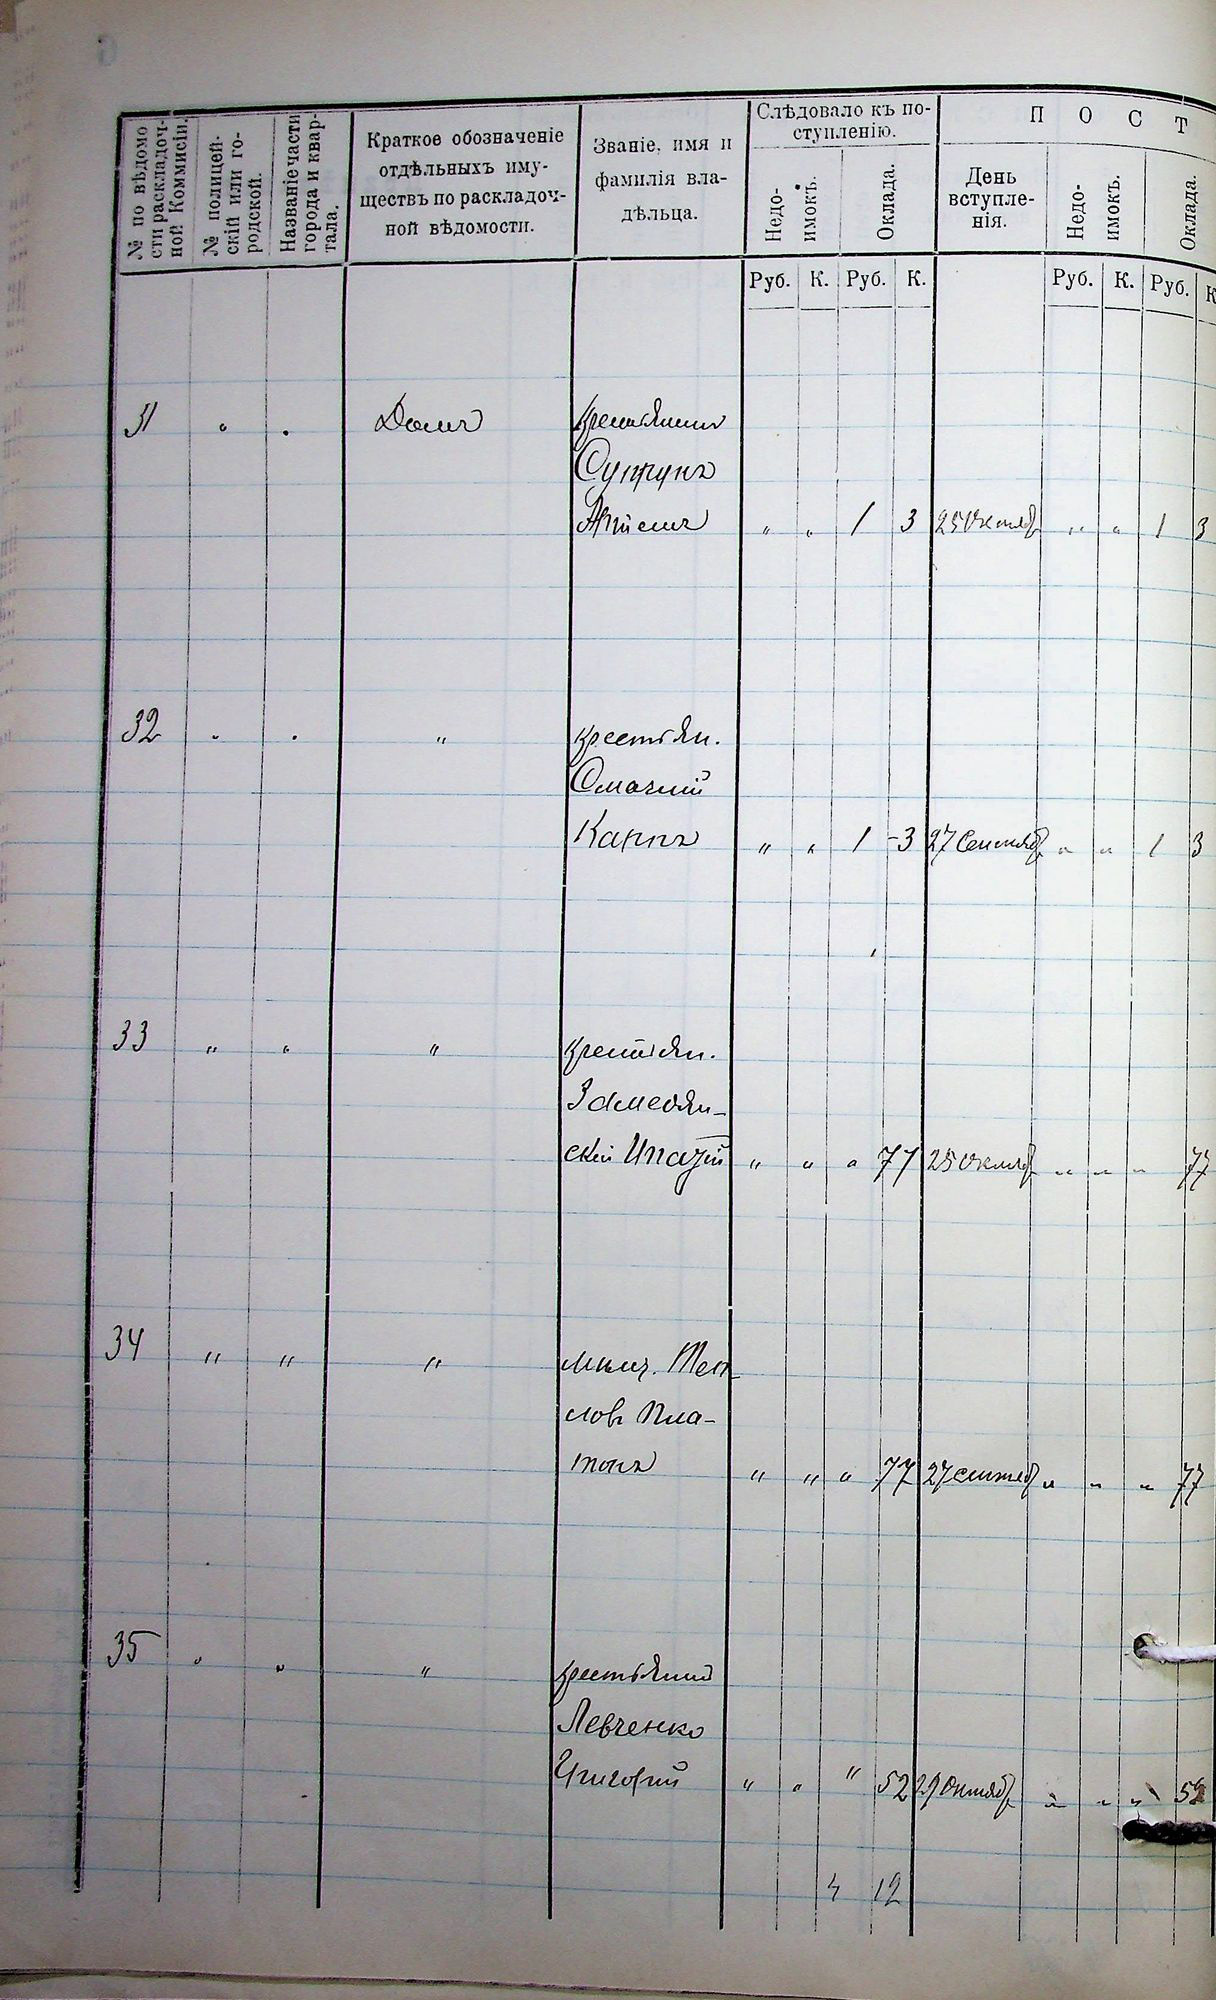 № по вѣдомо
сти раскладоч-
ной Коммисіи.
№ полицей-
скій или го-
родской.
Названіе части
города и квар-
тала.
Краткое обозначеніе
отдѣльныхъ иму-
ществъ по раскладоч-
ной вѣдомости.
Званіе, имя и
фамилія вла-
дѣльца.
Слѣдовало къ по-
ступленію.
Недо-
имокъ.
Оклада.
П О С Т
День
вступле-
нія.
Недо-
имокъ.
Оклада.
Руб. К. Руб. К. Руб. К. Руб. К
31 " " Домъ крестьянинъ
Супрунъ
" " 1 3 25 Октяб " " 1 3
32 " " " крестьян.
Смачній
Карпъ " " 1 3 27 Сентяб " " 1 3
33 " " " крестьян.
скій Ипатій " " " 77 25 Октяб " " " 77
34 " " " мѣщ. Теп-
ловъ Пла-
тонъ " " " 77 27 Сентяб " " " 77
35 " " " крестьянин
Левченко
Григорій " " " 52 29 Октяб " " " 52
4 12